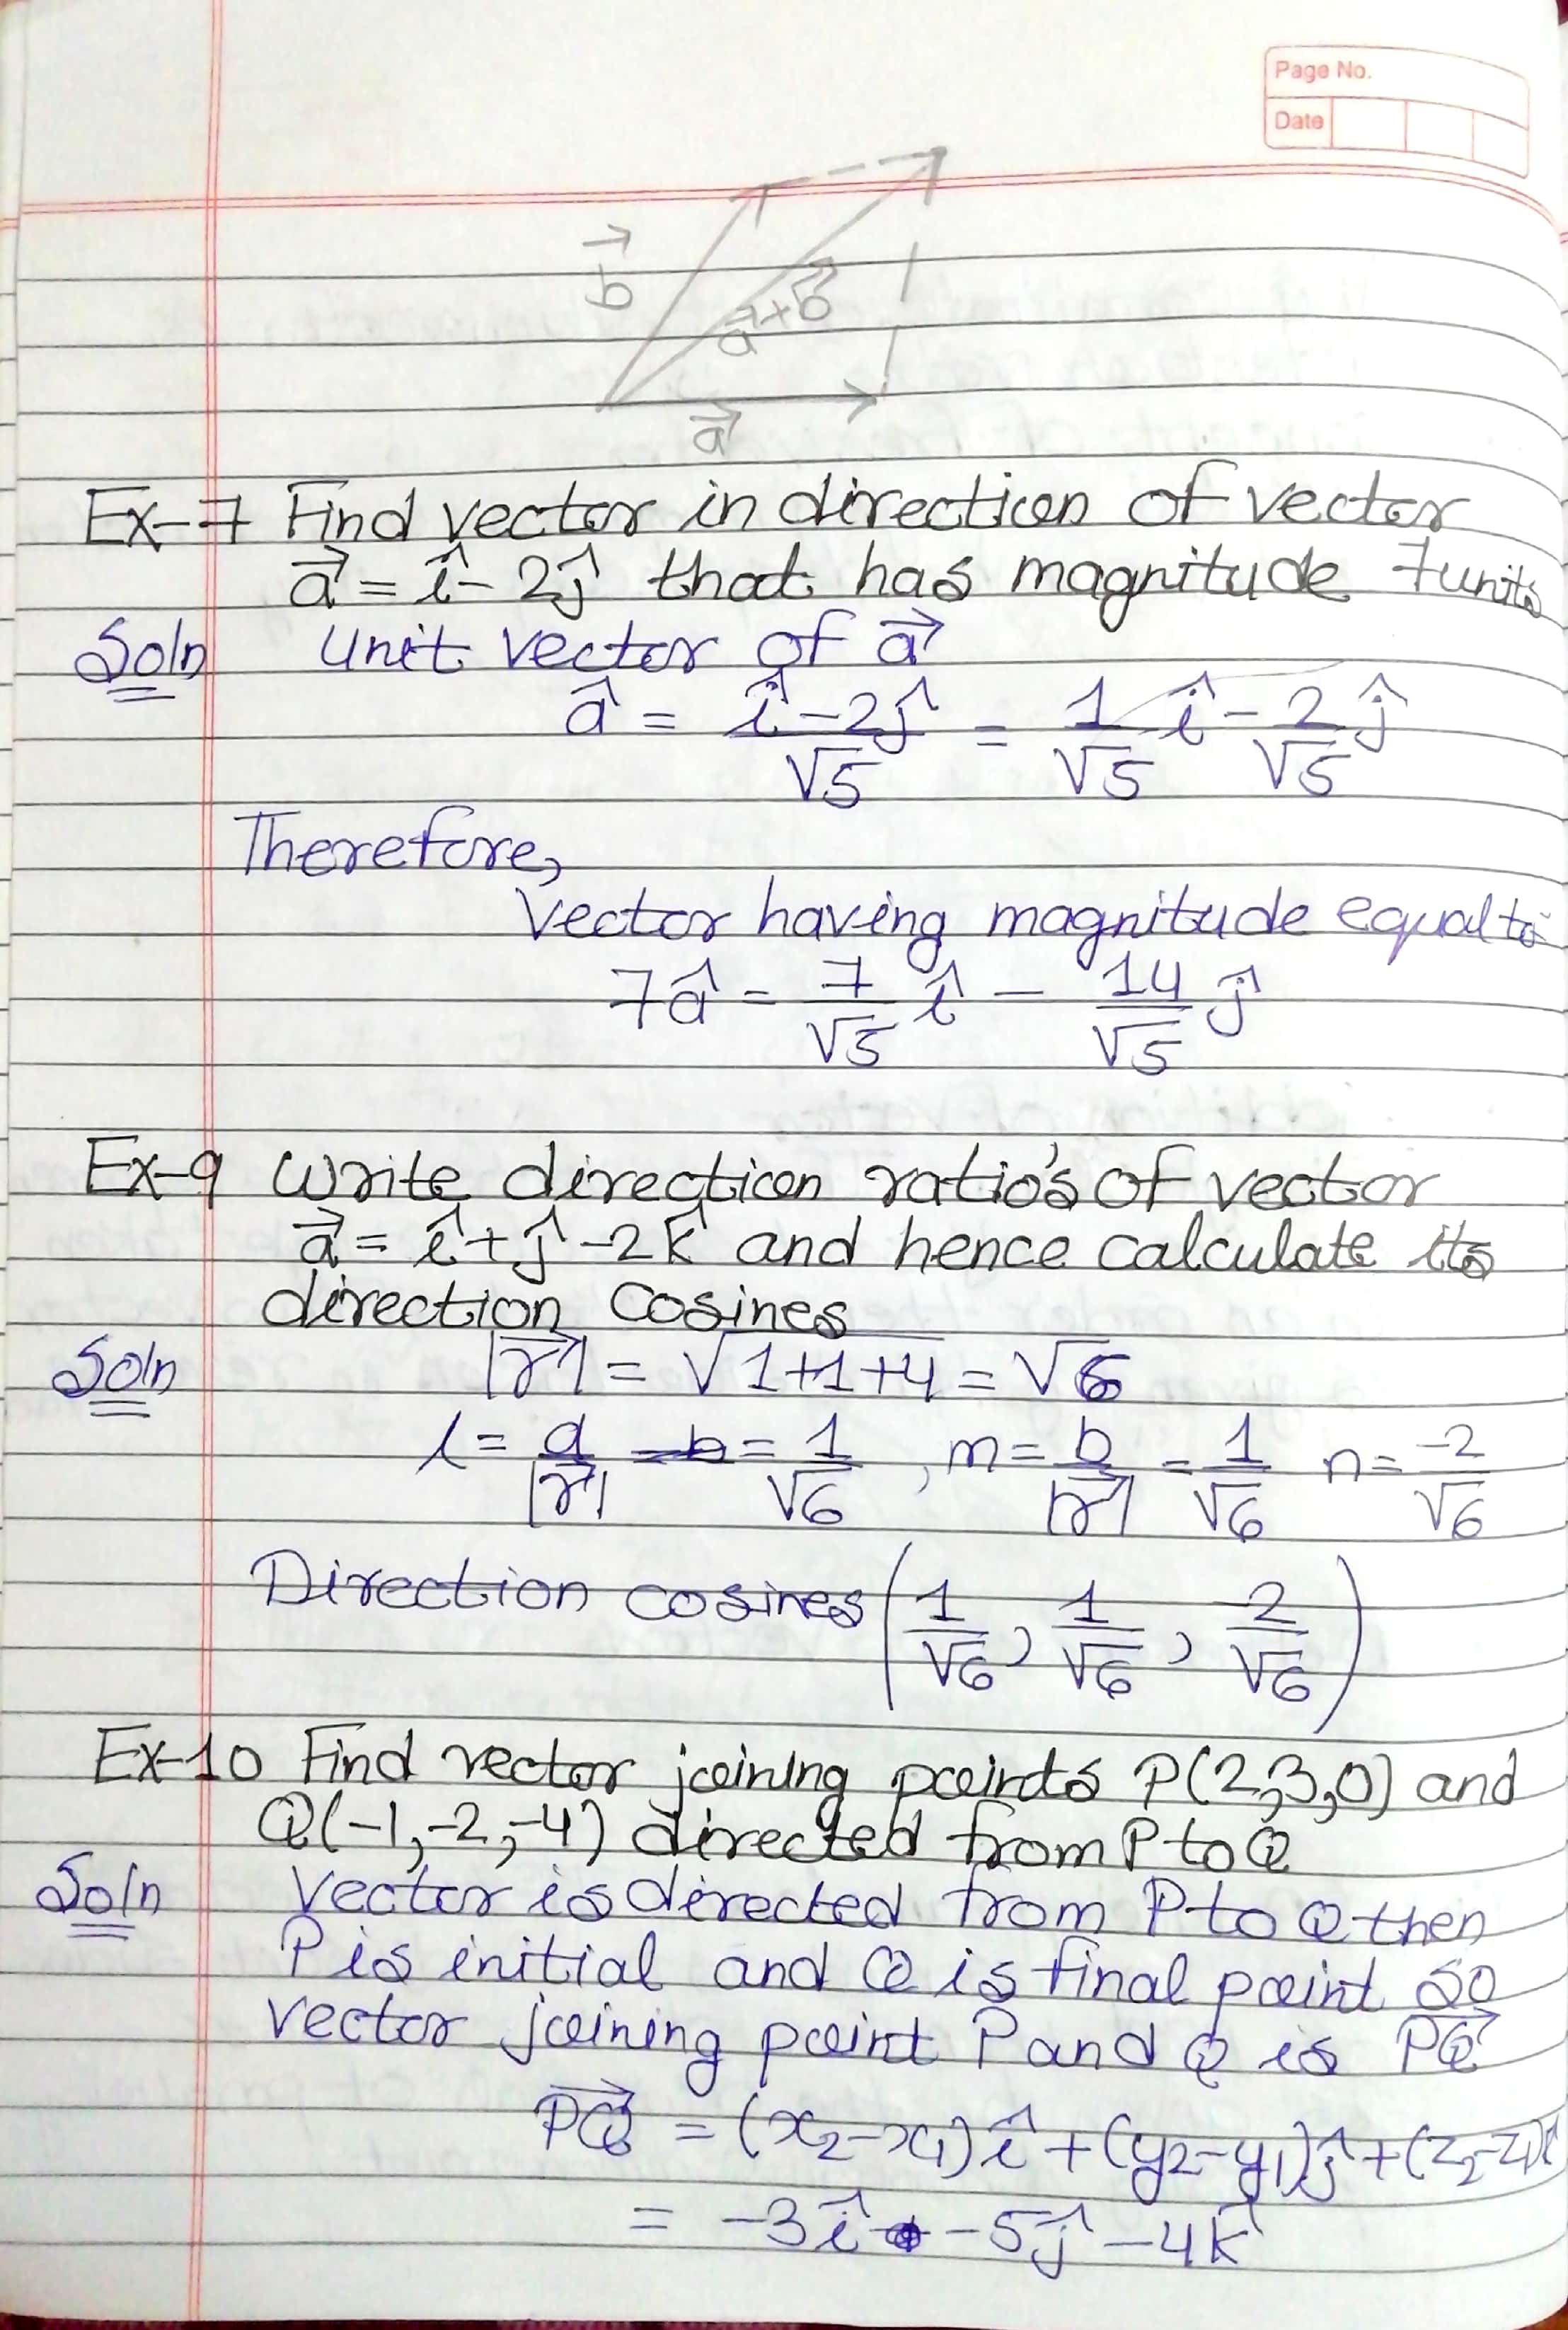 Page No.
Date
b⃗
a⃗+b⃗
a⃗
Ex-7 Find vector in direction of vector
a⃗ = î - 2ĵ that has magnitude 7units
Soln unit vector of a⃗
â = (î - 2ĵ)/√5 = 1/√5 î - 2/√5 ĵ
Therefore,
Vector having magnitude equal to
7â = 7/√5 î - 14/√5 ĵ
Ex-9 Write direction ratio's of vector
a⃗ = î + ĵ - 2k̂ and hence calculate its
direction cosines
Soln |r⃗| = √(1+1+4) = √6
l = a/|r⃗| = 1/√6 , m = b/|r⃗| = 1/√6 n = -2/√6
Direction cosines (1/√6, 1/√6, -2/√6)
Ex-10 Find vector joining points P(2,3,0) and
Q(-1,-2,-4) directed from P to Q
Soln Vector is directed from P to Q then
P is initial and Q is final point so
vector joining point P and Q is PQ⃗
PQ⃗ = (x₂-x₁)î + (y₂-y₁)ĵ + (z₂-z₁)k̂
= -3î - 5ĵ - 4k̂